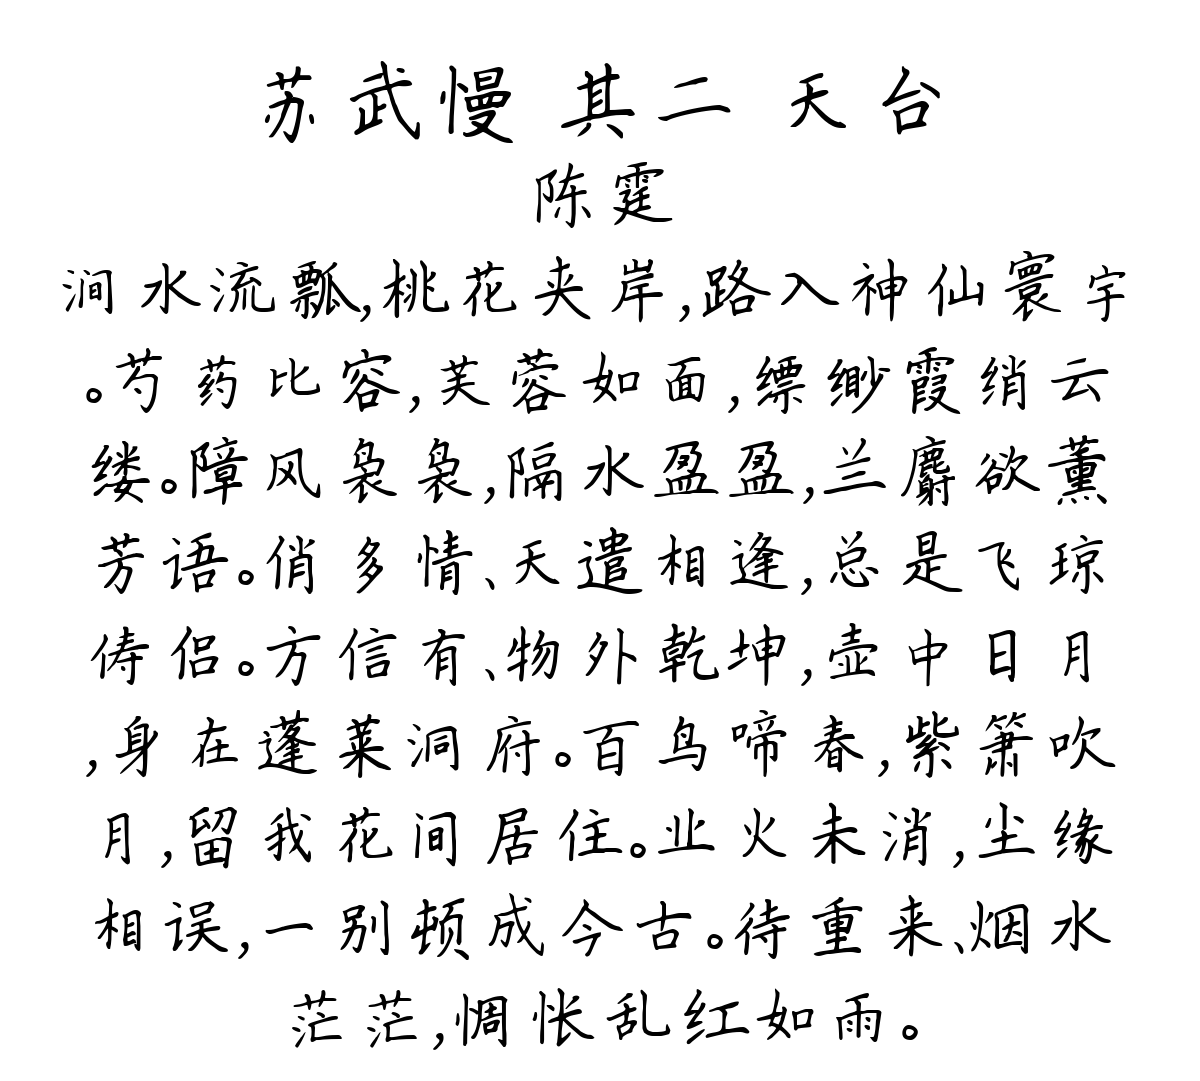 苏武慢 其二 天台
陈霆
涧水流瓢,桃花夹岸,路入神仙寰宇
。芍药比容,芙蓉如面,缥缈霞绡云
缕。障风袅袅,隔水盈盈,兰麝欲薰
芳语。俏多情、天遣相逢,总是飞琼
俦侣。方信有、物外乾坤,壶中日月
,身在蓬莱洞府。百鸟啼春,紫箫吹
月,留我花间居住。业火未消,尘缘
相误,一别顿成今古。待重来、烟水
茫茫,惆怅乱红如雨。